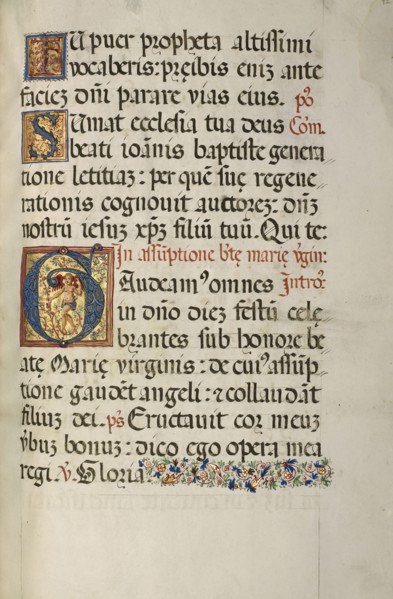 TU puer propheta altissimi
vocaberis: preibis eniz ante
faciez dñi parare vias eius. pō
SUmat ecclesia tua deus Com.
beati ioānis baptiste genera
tione letitiaz: per quē suę regene
rationis cognovit auctorez: dñz
nostrū iesuz xpz filiū tuū. Qui te:
In assūptione btę marię vgin.
GAudeamꝰ omnes Introꝰ.
in dño diez festū celę
brantes sub honore be
atę Marię virginis: de cuiꝰ assūp
tione gaudēt angeli: ⁊ collaudāt
filiuz dei. ps Eructavit cor meuz
vbuz bonuz: dico ego opera mea
regi. V. Gloria.